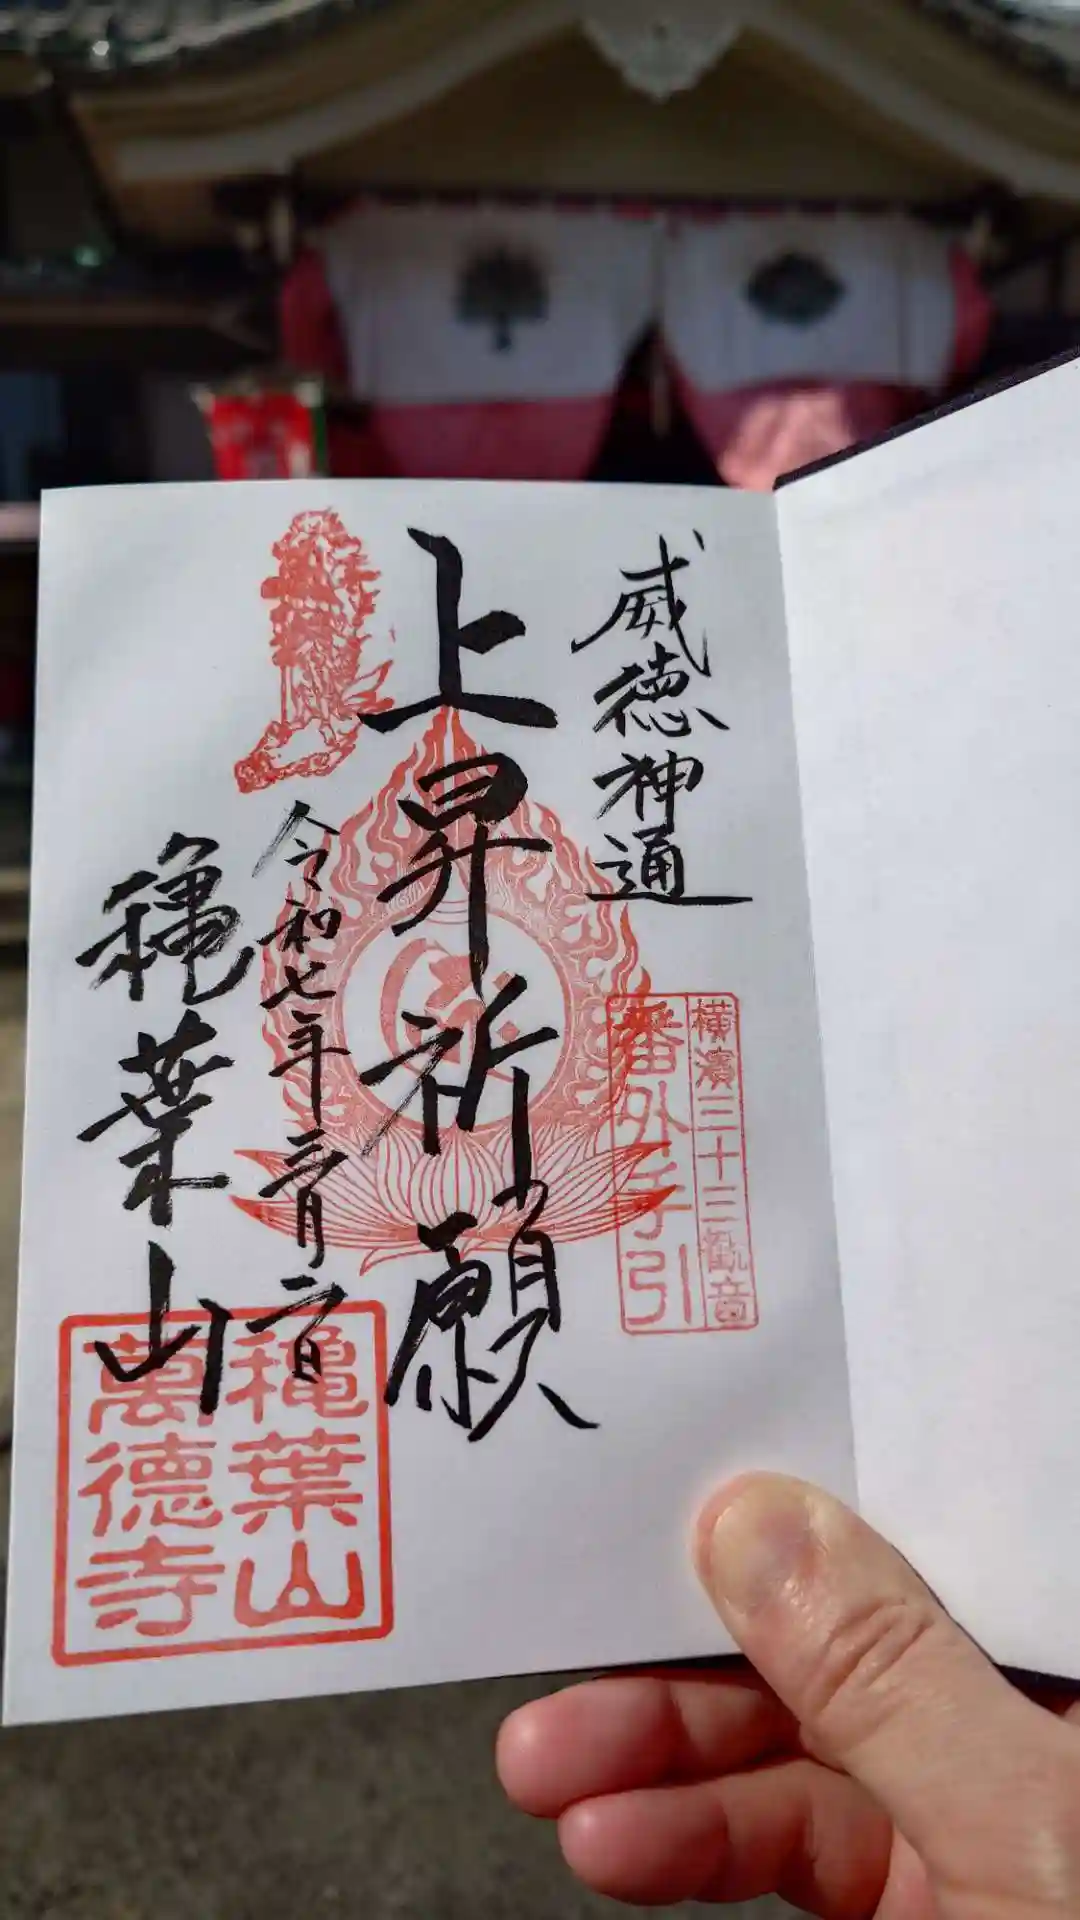 威徳神通
横濱三十三観音
番外手引
上昇祈願
令和七年三月二日
穐葉山
穐葉山
萬徳寺